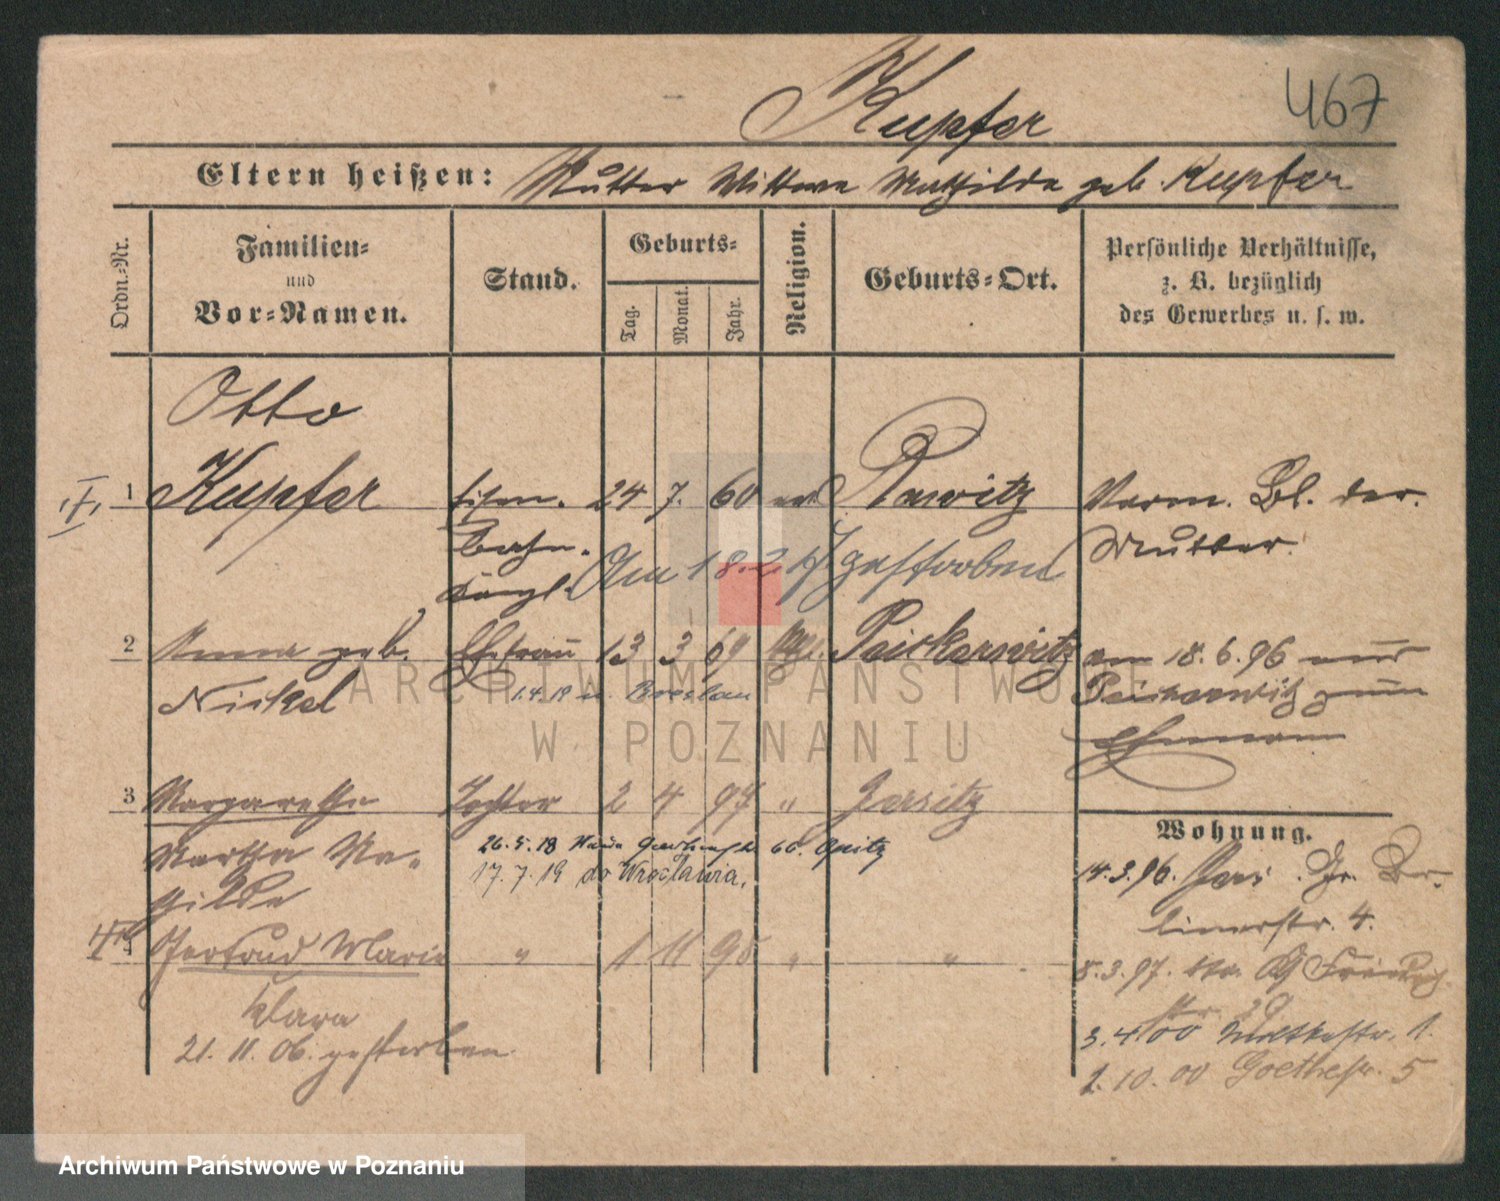 Kupfer
467
Eltern heißen: Mutter Wittwe Mathilde geb. Kupfer
Ordn.-Nr.
Familien-
und
Vor-Namen.
Stand.
Geburts-
Tag.
Monat.
Jahr.
Religion.
Geburts-Ort.
Persönliche Verhältnisse,
z. B. bezüglich
des Gewerbes u. s. w.
Otto
1 Kupfer Eisen- 24 7. 60 Rawitz Verm. Bl. der
bahn- Mutter.
Am 18.2. gestorben
2 Anna geb. Ehefrau 13 3 69 Peiskerwitz am 18.6.96 nach
Nickel 1.4.19 n. Breslau Peiskerwitz zum
Ehemann
3 Margarethe Tochter 2 4 97 " Jersitz
Wohnung.
Martha Ma-
thilde
26.5.18 60. Opitz
17.7.19 do Wrocławia.
14.3.96. Jers. Gr. Ber-
linerstr. 4.
4 Gertrud Marie " 1 11 98 " "
Klara
21. 11. 06. gestorben
5.3.97.
str. 29
3.4.00 Moltkestr. 1.
1.10.00 Goethestr. 5
ARCHIWUM PAŃSTWOWE
W POZNANIU
Archiwum Państwowe w Poznaniu